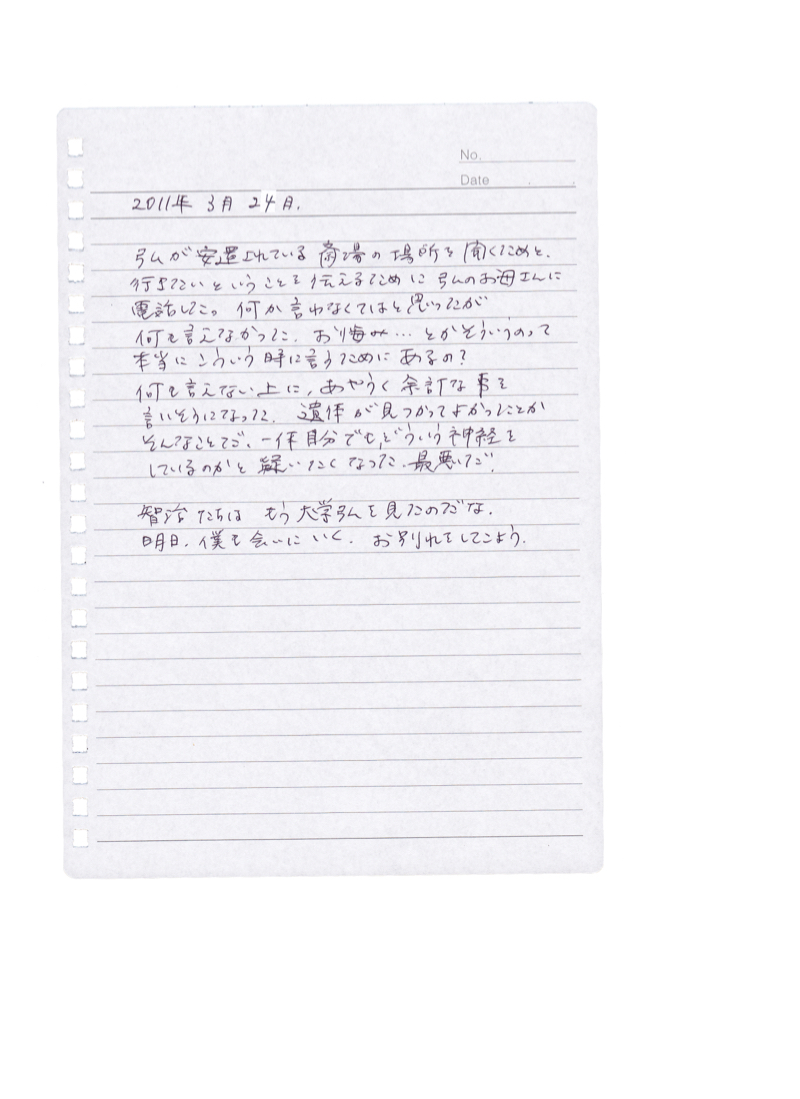 No.
Date
2011年 3月 24日.
弘が安置されている斎場の場所を聞くためと、
行きたいということを伝えるために弘のお母さんに
電話した。何か言わなくてはと思ったが
何も言えなかった. お悔み…とかそういうのって
本当にこういう時に言うためにあるの?
何も言えない上に, あやうく余計な事を
言いそうになった. 遺体が見つかってよかったことか
そんなことだ、一体自分でもどういう神経を
しているのかと疑いたくなった. 最悪だ!
智治たちはもう大学弘を見たのだな.
明日. 僕も会いにいく. お別れをしてこよう.